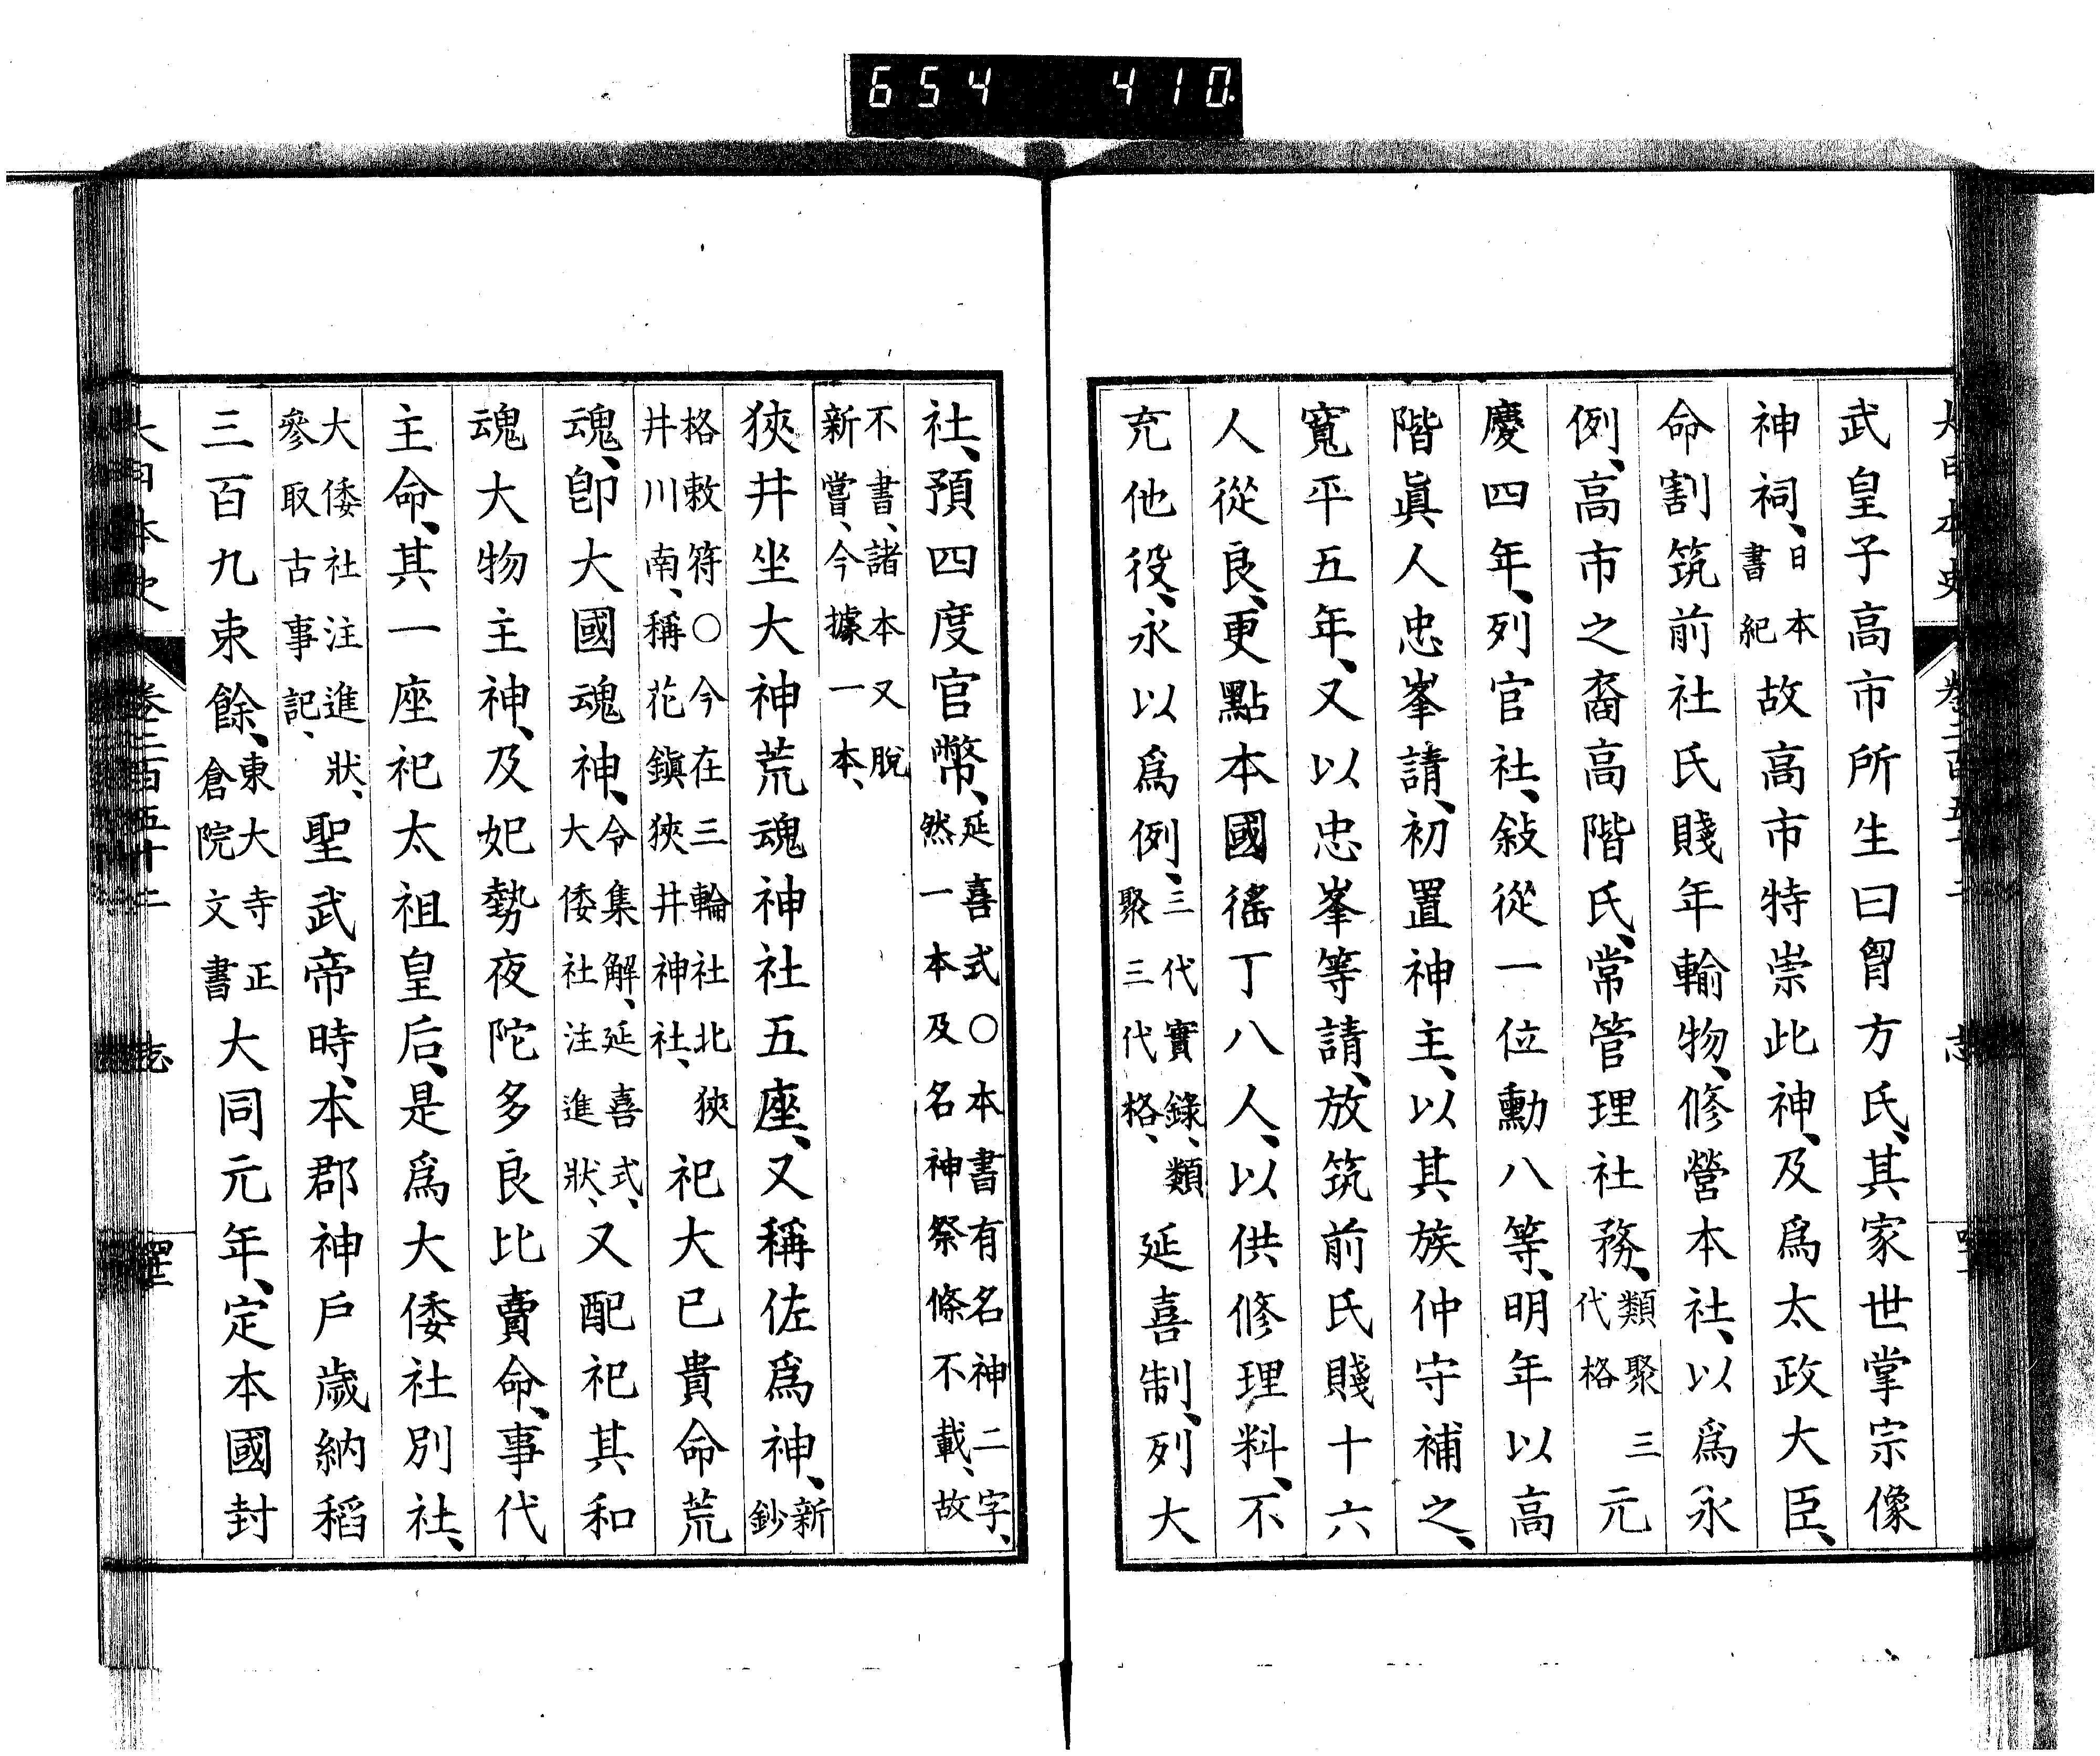 654 410.
武皇子高市所生曰胷方氏、其家世掌宗像
神祠、日本書紀故高市特崇此神、及爲太政大臣、
命割筑前社氏賤年輸物、修營本社、以爲永
例、高市之裔高階氏、常管理社務、類聚三代格元
慶四年、列官社、敍從一位勳八等、明年以高
階眞人忠峯請、初置神主、以其族仲守補之、
寬平五年、又以忠峯等請、放筑前氏賤十六
人從良、更點本國徭丁八人、以供修理料、不
充他役、永以爲例、三代實錄、類聚三代格、延喜制、列大
社、預四度官幣、延喜式○本書有名神二字、然一本及名神祭條不載、故
不書、諸本又脫新嘗、今據一本、
狹井坐大神荒魂神社五座、又稱佐爲神、新鈔
格敕符○今在三輪社北狹井川南、稱花鎭狹井神社、祀大已貴命荒
魂、卽大國魂神、令集解、延喜式、大倭社注進狀、又配祀其和
魂大物主神、及妃勢夜陀多良比賣命、事代
主命、其一座祀太祖皇后、是爲大倭社別社、
大倭社注進狀、參取古事記、聖武帝時、本郡神戶歲納稻
三百九束餘、東大寺正倉院文書大同元年、定本國封
大日本史 卷二百五十二 志